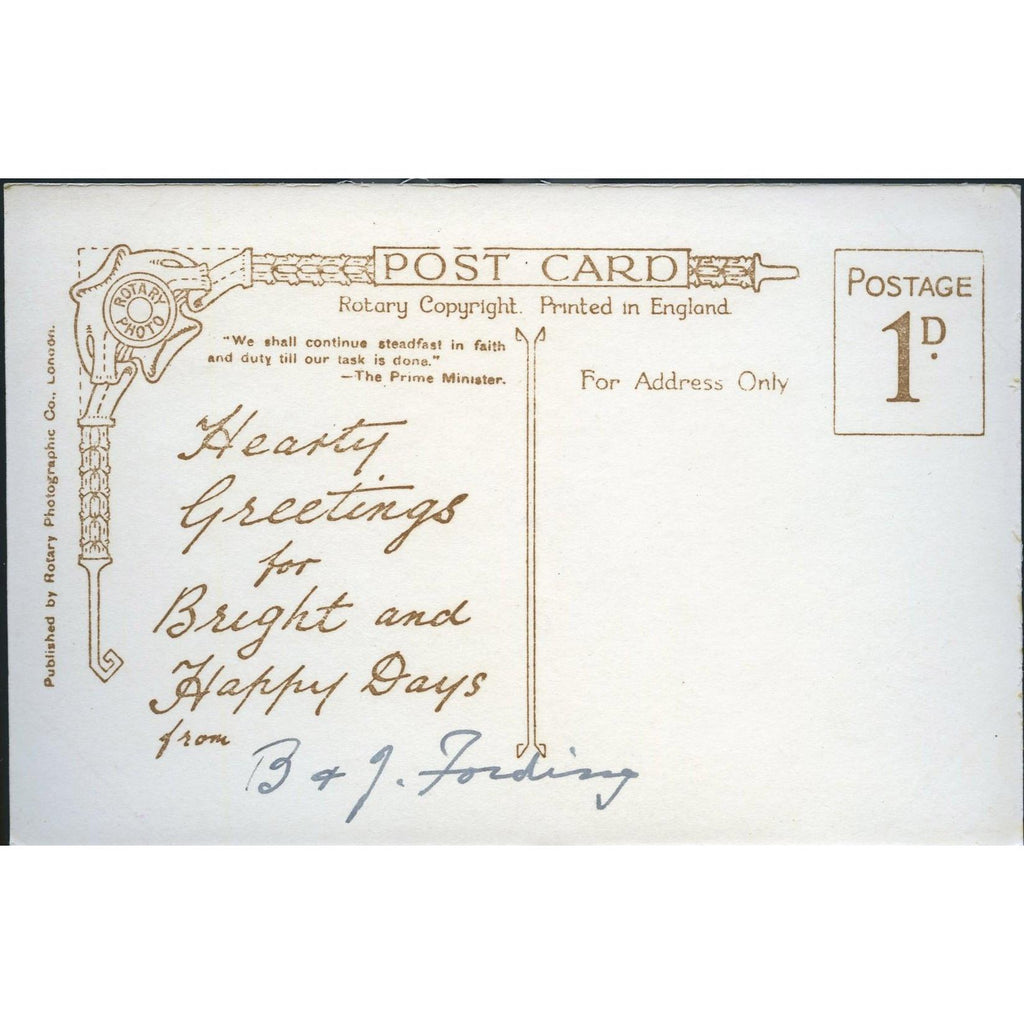 POST CARD
Rotary Copyright. Printed in England
ROTARY
PHOTO
POSTAGE
1D.
"We shall continue steadfast in faith
and duty till our task is done."
—The Prime Minister.
For Address Only
Published by Rotary Photographic Co., London.
Hearty
Greetings
for
Bright and
Happy Days
from
B & J. Fording